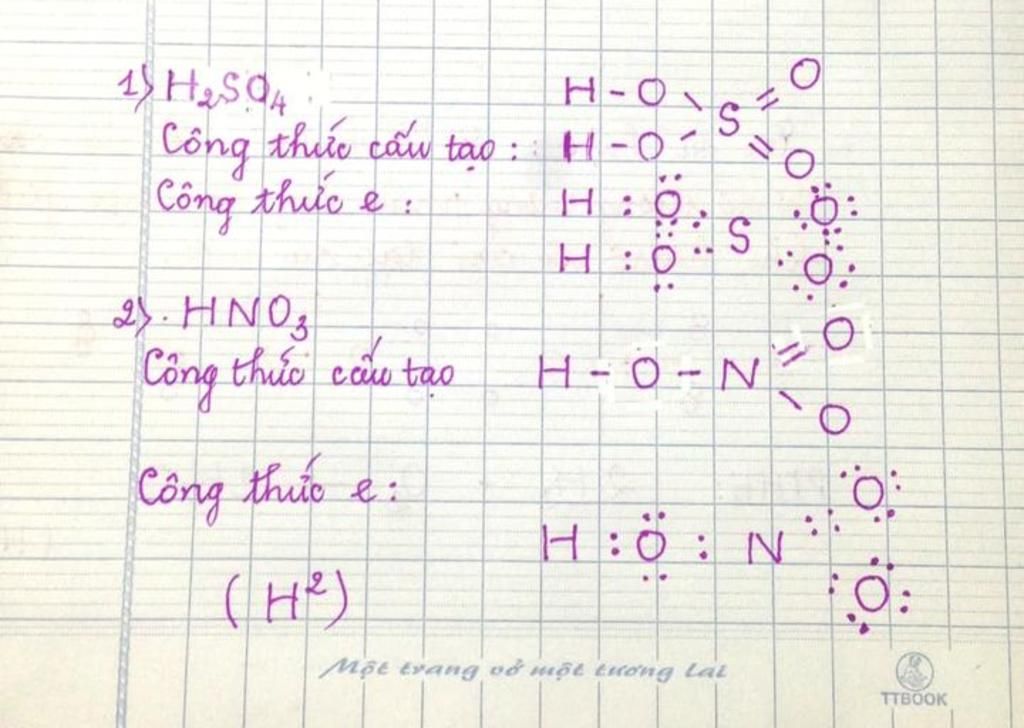 1) H₂SO₄
H - O \ S // O
Công thức cấu tạo : H - O / \\ O
Công thức e : H : O S O
H : O O
2) . HNO₃
Công thức cấu tạo H - O - N // O
\ O
Công thức e :
O
H : O : N
O
(H²)
Một trang vở một tương lai
TTBOOK